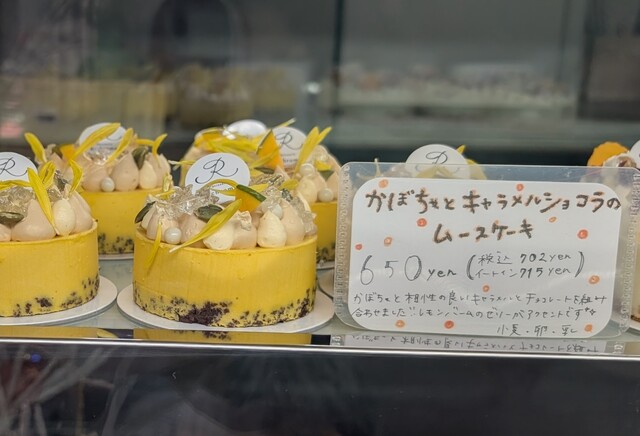 かぼちゃとキャラメルショコラの
ムースケーキ
650yen (税込 702yen
イートイン 715yen)
かぼちゃと相性の良いキャラメルとチョコレートを組み
合わせました!! レモンバームのゼリーがアクセントです
小麦・卵・乳
R
R
R
R